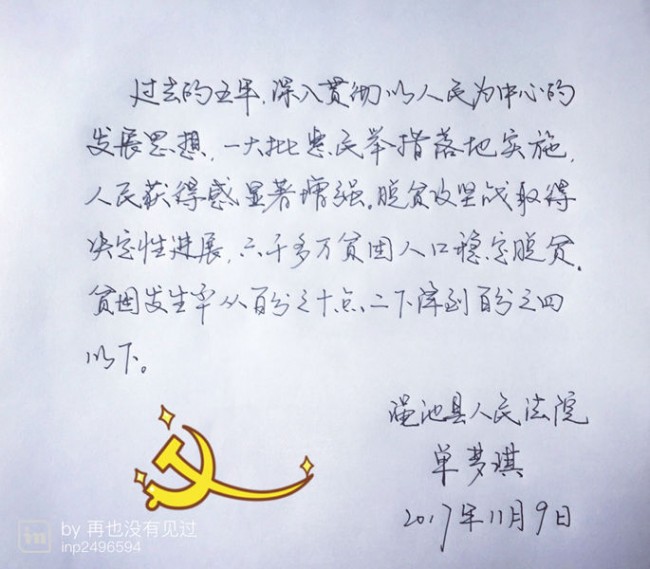 过去的五年,深入贯彻以人民为中心的
发展思想,一大批惠民举措落地实施,
人民获得感显著增强。脱贫攻坚战取得
决定性进展,六千多万贫困人口稳定脱贫,
贫困发生率从百分之十点二下降到百分之四
以下。
渑池县人民法院
单梦琪
2017年11月9日
in by 再也没有见过
inp2496594